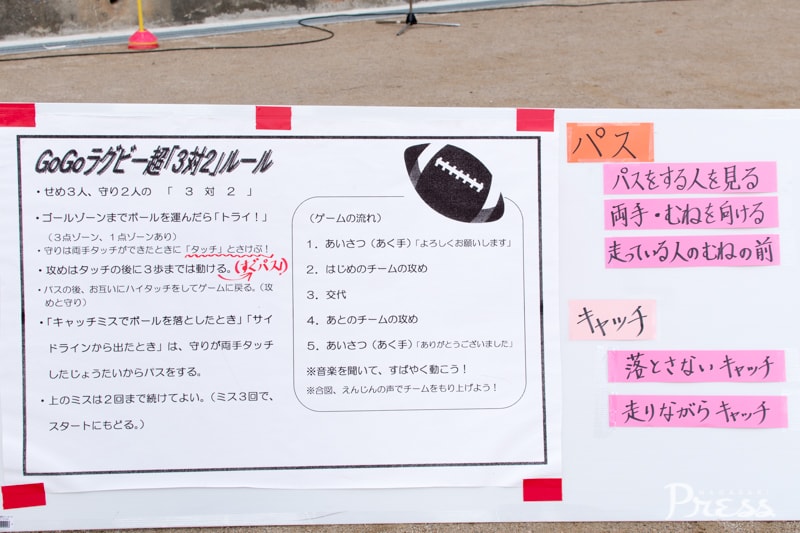 GoGoラグビー超「3対2」ルール
・せめ3人、守り2人の 「 3 対 2 」
・ゴールゾーンまでボールを運んだら「トライ！」
（3点ゾーン、1点ゾーンあり）
・守りは両手タッチができたときに「タッチ」とさけぶ！
・攻めはタッチの後に3歩までは動ける。(すぐパス!)
・パスの後、お互いにハイタッチをしてゲームに戻る。（攻
めと守り）
・「キャッチミスでボールを落としたとき」「サイ
ドラインから出たとき」は、守りが両手タッチ
したじょうたいからパスをする。
・上のミスは2回まで続けてよい。（ミス3回で、
スタートにもどる。）
（ゲームの流れ）
1．あいさつ（あく手）「よろしくお願いします」
2．はじめのチームの攻め
3．交代
4．あとのチームの攻め
5．あいさつ（あく手）「ありがとうございました」
※音楽を聞いて、すばやく動こう！
※合図、えんじんの声でチームをもり上げよう！
パス
パスをする人を見る
両手・むねを向ける
走っている人のむねの前
キャッチ
落とさないキャッチ
走りながらキャッチ
Press